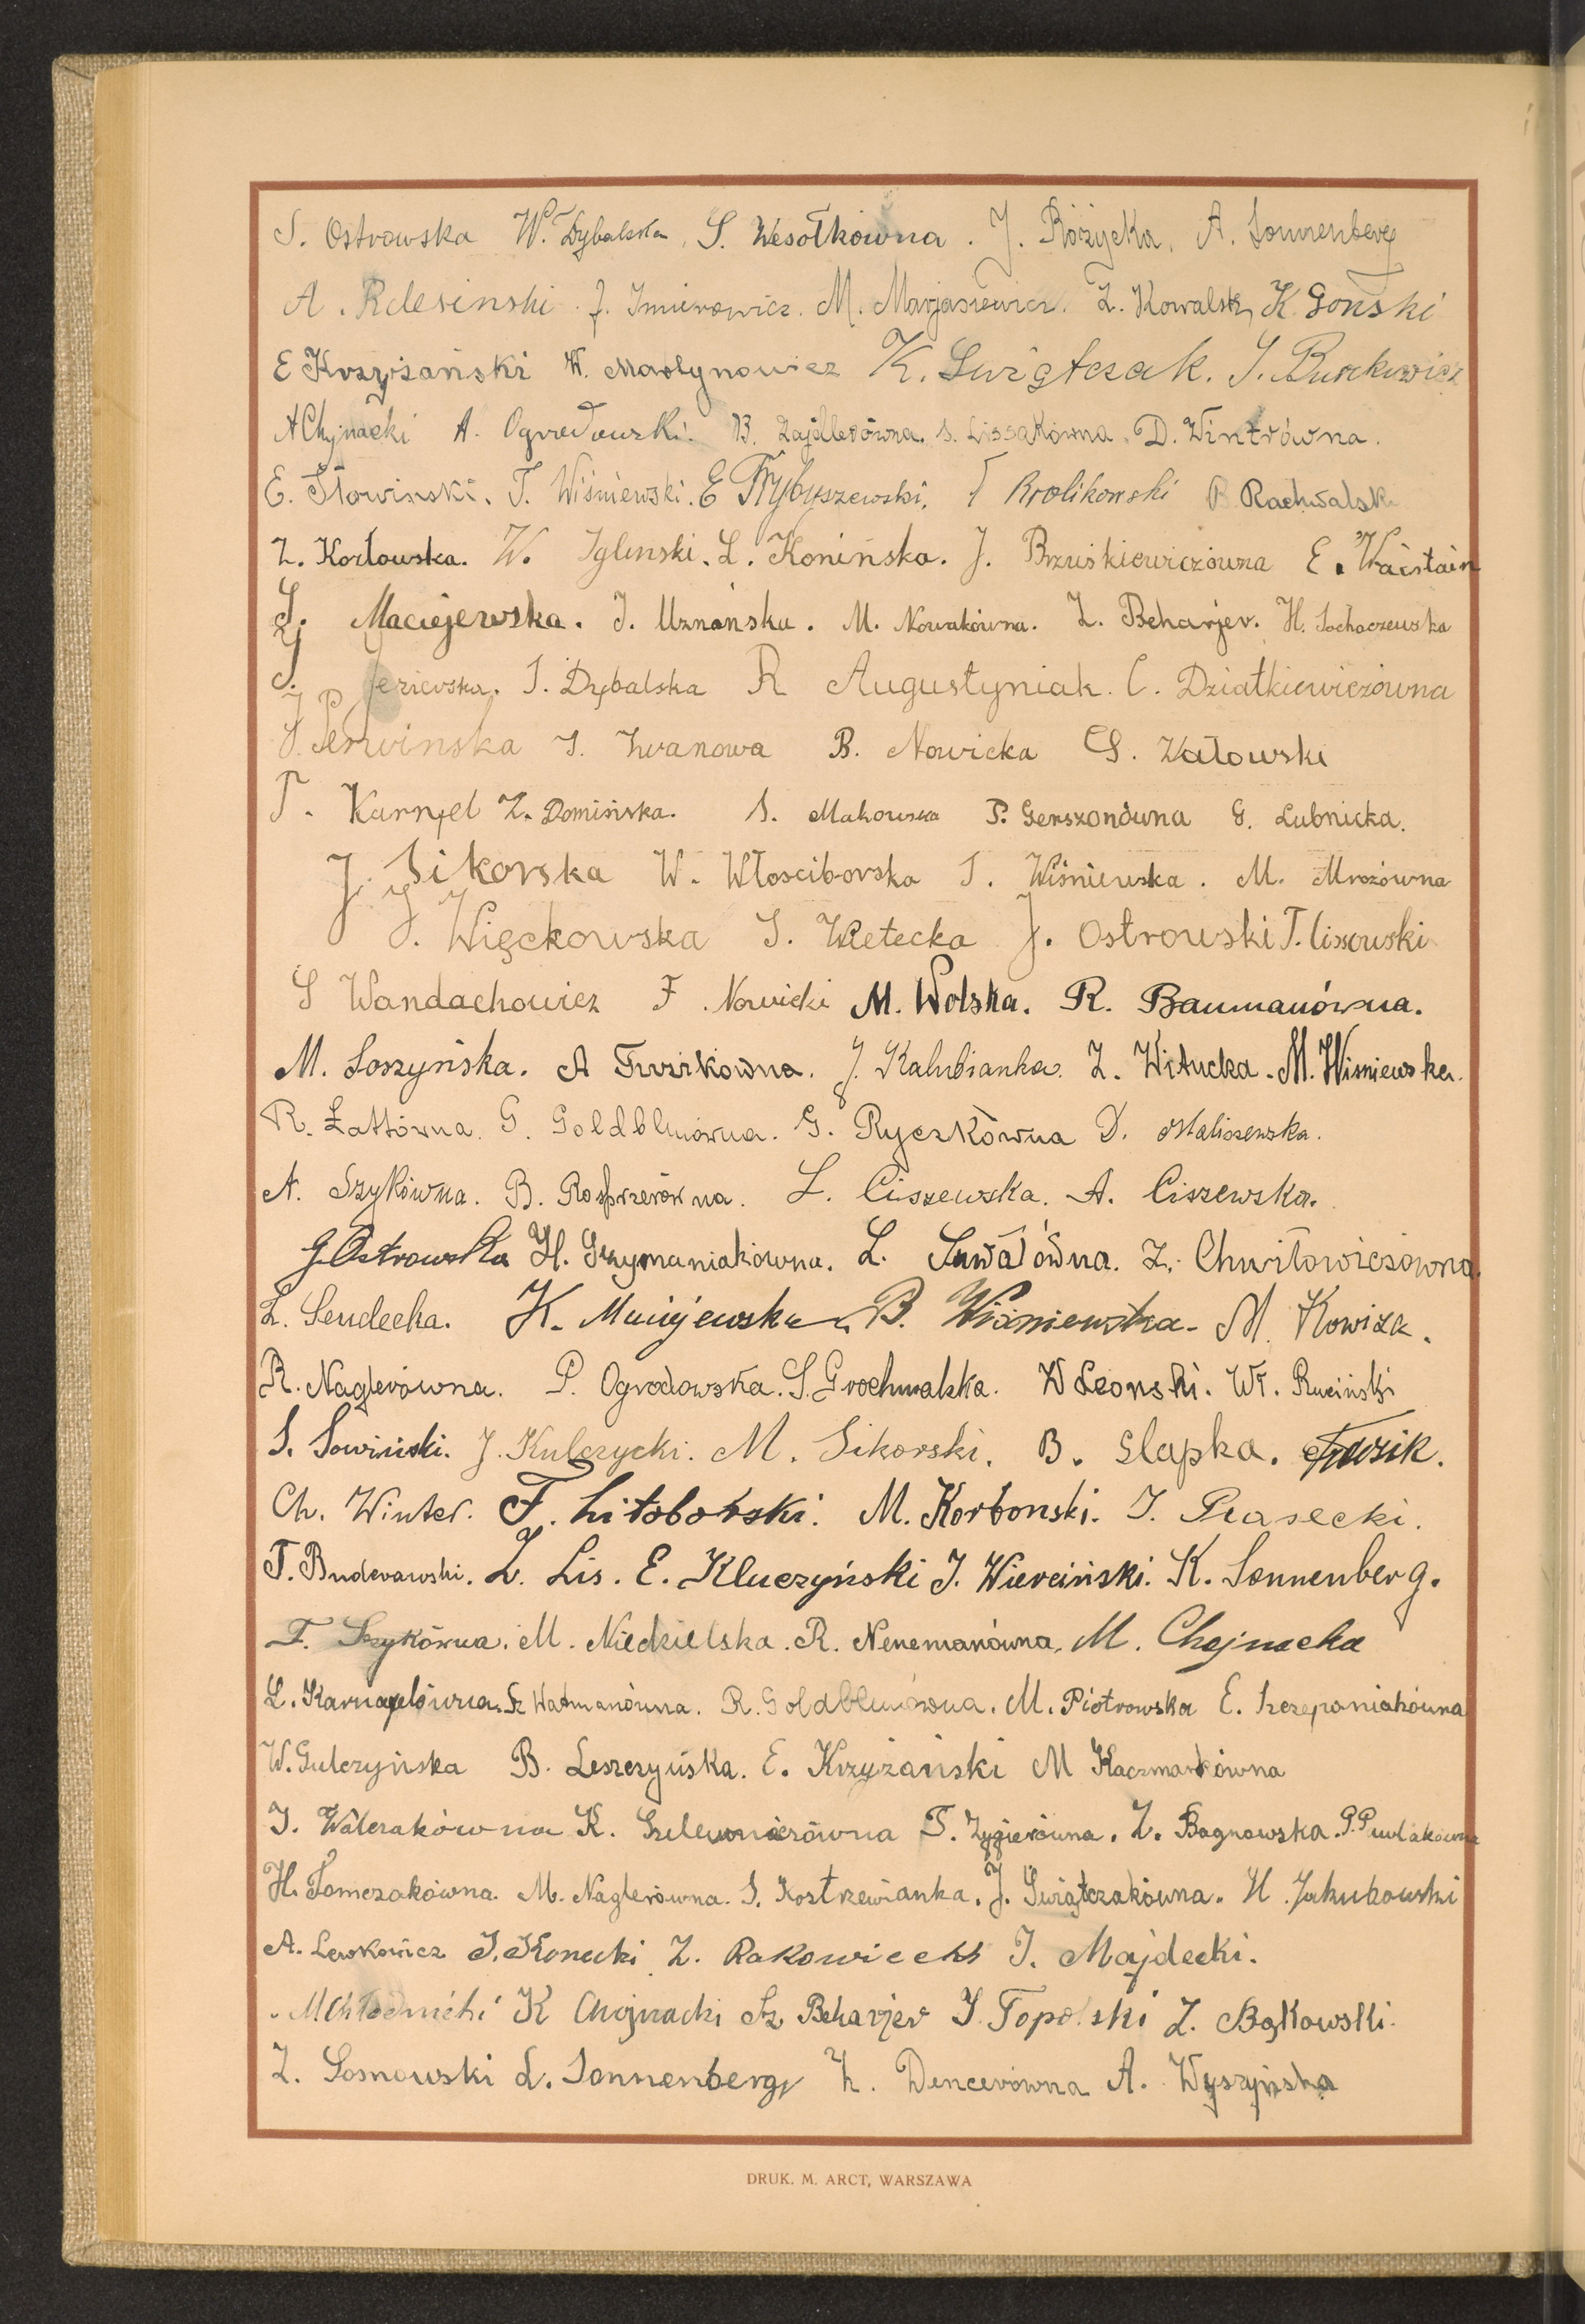 S. Ostrowska W. Dybalska, S. Wesołkówna. J. Różycka, A. Sonnenberg
A. Rdesinski J. Imierowicz. M. Marjasiewicz. Z. Kowalsk K. Gonski
E Krzyżański W. Martynowicz K. Swiątczak. J. Burkiewicz
A Chojnacki A. Ogrodowski. B. Zajdlerówna. S. Lissakówna. D. Wintrówna.
E. Słowinski. T. Wiśniewski. E Trybuszewski. T Krolikowski B Rachwalsk
Z. Kozłowska. W. Iglinski. L. Konińska. J. Bruśkiewiczówna E. Wajstain
S. Maciejewska. J. Uznańska. M. Nowakówna. Z. Beharjer. H. Sochaczewska
J. Jezievska. I. Dybalska R Augustyniak. C. Działkiewiczówna
J. Perwinska I. Iwanowa B. Nowicka S. Załowski
T. Karnfel Z. Domińska. S. Makowska P. Gerszonówna G. Lubnicka.
J. Sikorska W. Włosciborska I. Wiśniewska. M. Mrozówna
J. Więckowska I. Wletecka J. Ostrowski T. Lissowski
S Wandachowicz F. Nowicki M. Wolska. R. Baumanówna.
M. Soszyńska. A Turzikówna. J. Kalubianka. Z. Witucka. M. Wisniewska.
R. Łattówna. G. Goldblumówna. G. Ryczkówna D. Ostaliszewska.
A. Szykówna. B. Rosprzerówna. L. Ciszewska. A. Ciszewska.
G. Ostrowska H. Szymaniakówna. L. Suwałówna. Z. Chwiłowiczówna.
L. Sendecka. K. Maciejewska B. Wiśniewska. M. Kowiza.
R. Naglerówna. P. Ogrodowska. S. Grochwalska. W Leonski. Wł. Ruciński
S. Sowiński. J. Kulczycki. M. Sikorski. B. Slapka.
Ch. Winter. F. Litoborski. M. Korbonski. I. Piasecki.
T. Buderawski. Z. Lis. E. Kluczyński J. Wierciński. K. Sonnenberg.
F. Szykówna. M. Niedzielska. R. Nenemanówna, M. Chojnacka
L. Karnafelówna. Sz Watmanówna. R. Goldblumówna. M. Piotrowska E. Szczepaniakówna
W. Gulczyńska B. Leszczyńska. E. Krzyżański M Kaczmarkówna
J. Walczakówna K. Szlemierówna F. Zygierówna. Z. Bagnowska. P. Pawlakówna
H. Tomczakówna. M. Naglerówna. S. Kostrzewianka. J. Swiątczakówna. H. Jakubowski
A. Lewkowicz J. Konecki Z. Rakowiecki I. Majdecki.
M Chłodnicki K Chojnacki Sz Beharjer J. Topolski Z. Bąkowski.
Z. Sosnowski L. Sonnenberg Z. Dencerówna A. Wyszyńska
DRUK. M. ARCT, WARSZAWA